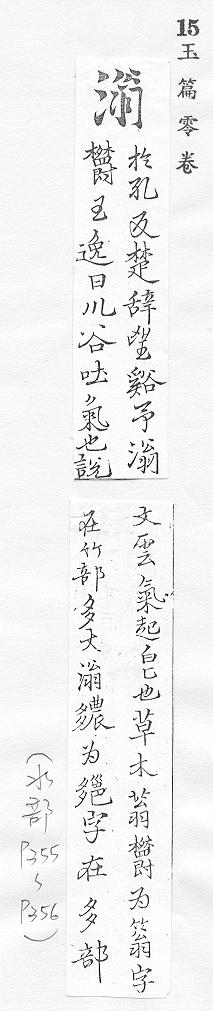 15
玉篇零卷
滃
扵孔反楚辞望谿予滃
欝王逸曰川谷吐氣也說
文雲氣起皀也草木蓊欝为䈵字
在竹部多大滃为字在多部
（水部
P355
～
P356）